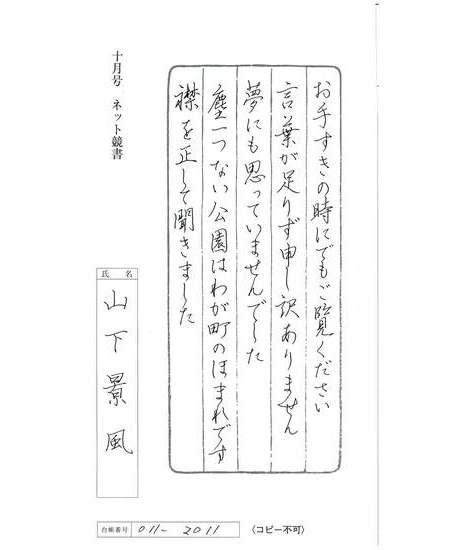 お手すきの時にでもご覧ください
言葉が足りず申し訳ありません
夢にも思っていませんでした
塵一つない公園はわが町のほまれです
襟を正して聞きました
十月号 ネット競書
氏名
山下景風
台帳番号 011-2011
(コピー不可)